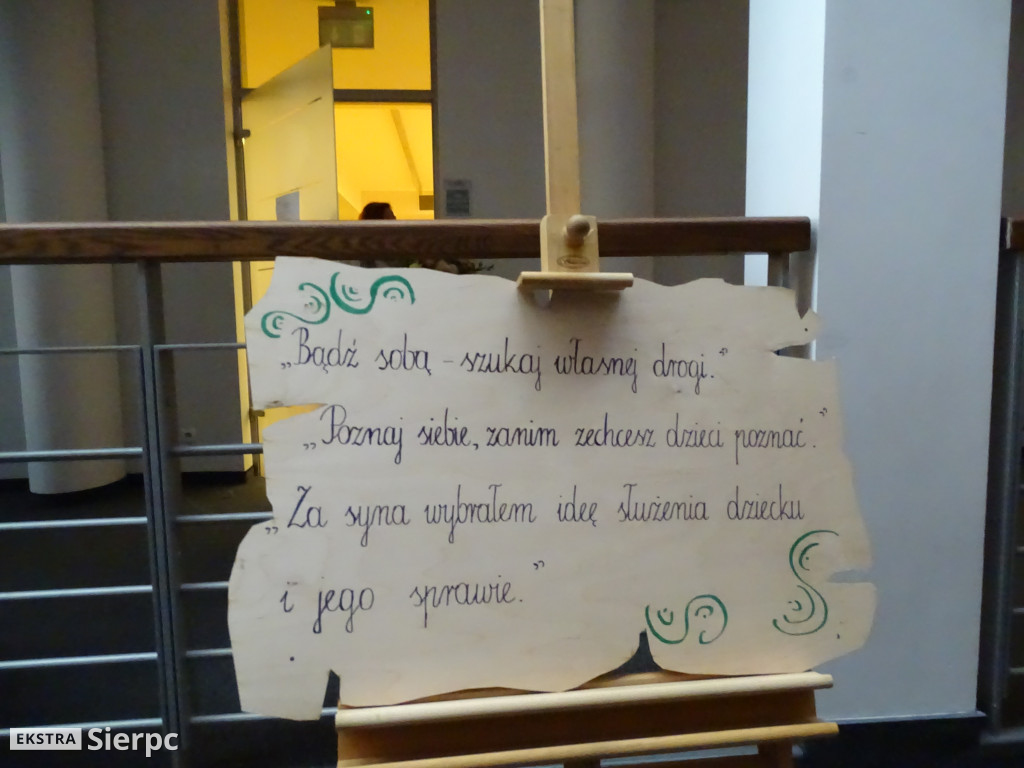 „Bądź sobą - szukaj własnej drogi."
„Poznaj siebie, zanim zechcesz dzieci poznać."
„Za syna wybrałem ideę służenia dziecku
i jego sprawie."
EKSTRA Sierpc